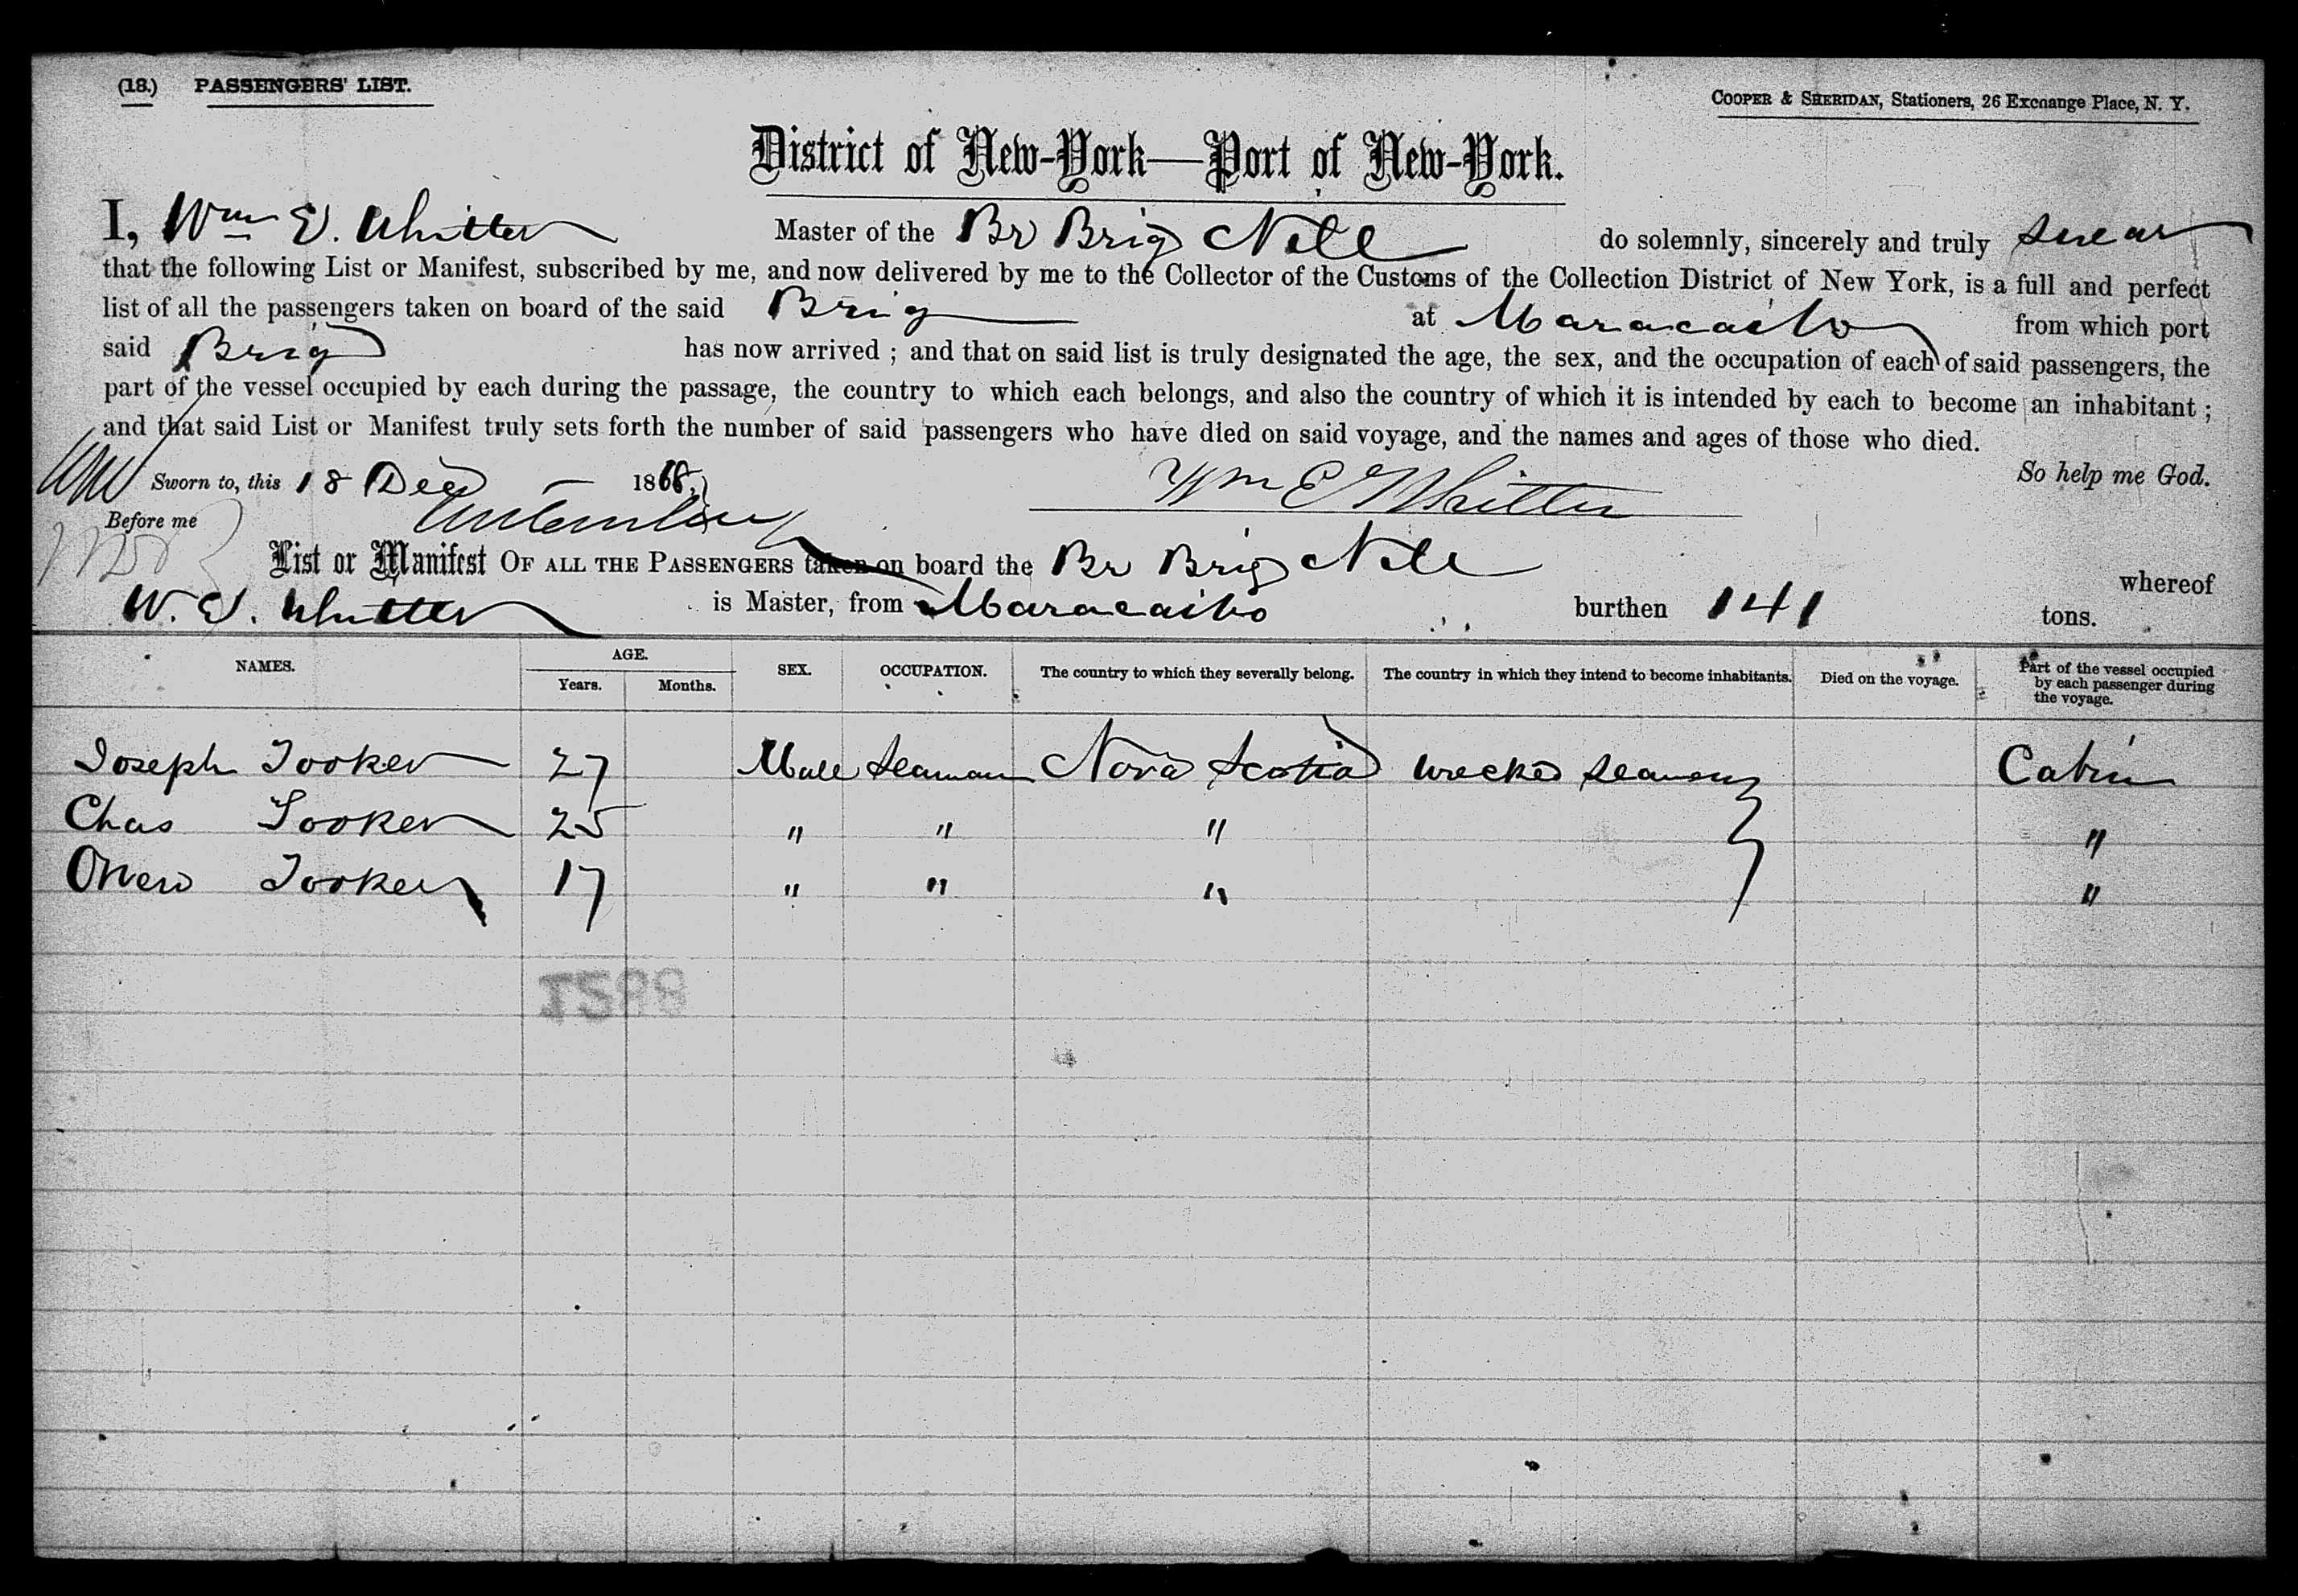 (18.) PASSENGERS' LIST.
COOPER & SHERIDAN, Stationers, 26 Exchange Place, N. Y.
District of New-York—Port of New-York.
I, Wm E. Whitter Master of the Br Brig Nile do solemnly, sincerely and truly swear
that the following List or Manifest, subscribed by me, and now delivered by me to the Collector of the Customs of the Collection District of New York, is a full and perfect
list of all the passengers taken on board of the said Brig at Maracaibo from which port
said Brig has now arrived ; and that on said list is truly designated the age, the sex, and the occupation of each of said passengers, the
part of the vessel occupied by each during the passage, the country to which each belongs, and also the country of which it is intended by each to become an inhabitant ;
and that said List or Manifest truly sets forth the number of said passengers who have died on said voyage, and the names and ages of those who died.
So help me God.
Sworn to, this 18 Dec 1868,
Wm E Whitter
Before me
List or Manifest OF ALL THE PASSENGERS taken on board the Br Brig Nile whereof
W. E. Whitter is Master, from Maracaibo burthen 141 tons.
NAMES. AGE. Years. Months. SEX. OCCUPATION. The country to which they severally belong. The country in which they intend to become inhabitants. Died on the voyage. Part of the vessel occupied by each passenger during the voyage.
Joseph Tooker 27 Male Seaman Nova Scotia wrecked seamen Cabin
Chas Tooker 25 " " " "
Owen Tooker 17 " " " "